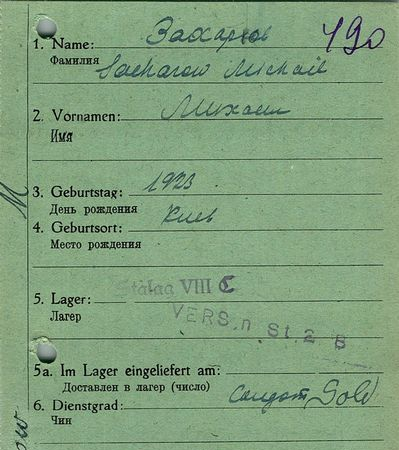 1. Name: Захаров 490
Фамилия
Sacharow Michail
2. Vornamen: Михаил
Имя
3. Geburtstag: 1923
День рождения
4. Geburtsort: Киев
Место рождения
Stalag VIII C
5. Lager:
Лагерь
VERS. n St. 2 B
5a. Im Lager eingeliefert am:
Доставлен в лагерь (число)
6. Dienstgrad: Солдат Sold
Чин